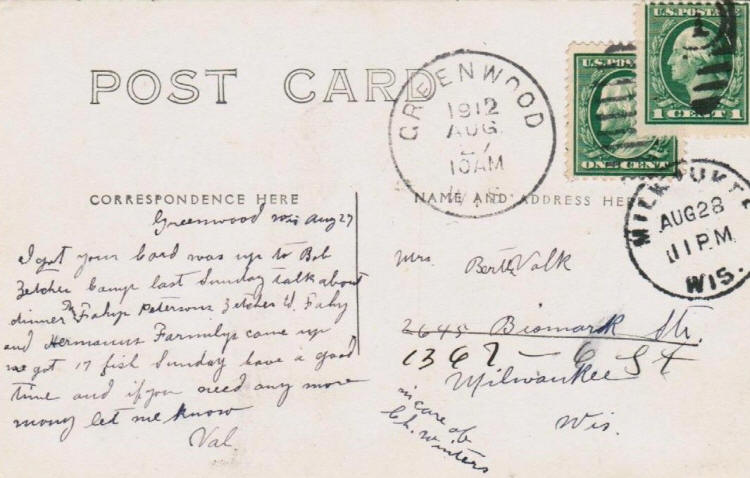 POST CARD
GREENWOOD
1912
AUG
27
10AM
WIS
U.S.POSTAGE
ONE CENT
U.S.POSTAGE
1 CENT 1
MILWAUKEE
AUG 28
11 P.M.
WIS.
CORRESPONDENCE HERE
NAME AND ADDRESS HERE
Greenwood Wis Aug 27
I got your Card was up to Bob
Zetcher Camp last Sunday talk about
dinner Fahys Petersons Zetcher W. Fahy
and Hermanns Farmilys came up
we got 17 fish Sunday have a good
time and if you need any more
mony let me know
Val.
Mrs Berth Valk
2645 Bismark Str.
1367 - 6 St
Milwaukee
Wis.
in care of
Ch. Winters